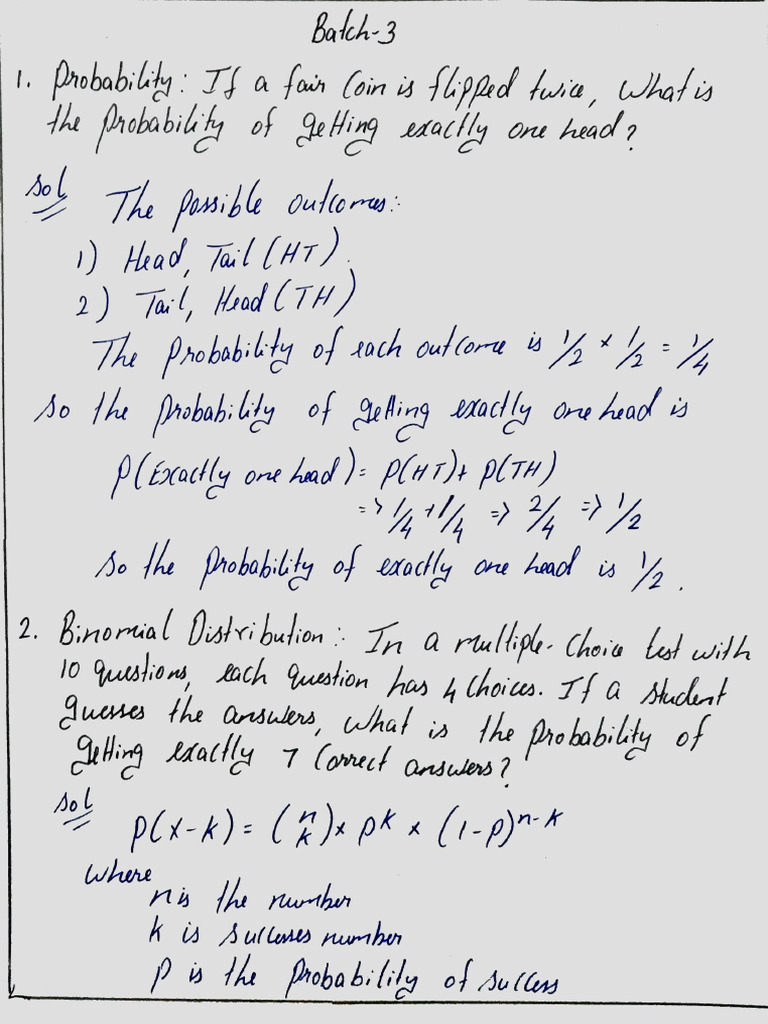 Batch-3
1. Probability: If a fair coin is flipped twice, what is
the probability of getting exactly one head?
Sol The possible outcomes:
1) Head, Tail (HT).
2) Tail, Head (TH)
The probability of each outcome is 1/2 × 1/2 = 1/4
so the probability of getting exactly one head is
P(Exactly one head) = P(HT) + P(TH)
=> 1/4 + 1/4 => 2/4 => 1/2
so the probability of exactly one head is 1/2.
2. Binomial Distribution: In a multiple-choice test with
10 questions, each question has 4 choices. If a student
guesses the answers, what is the probability of
getting exactly 7 correct answers?
Sol
P(x-k) = (n k) × p^k × (1-p)^n-k
where
n is the number
k is successes number
p is the probability of success